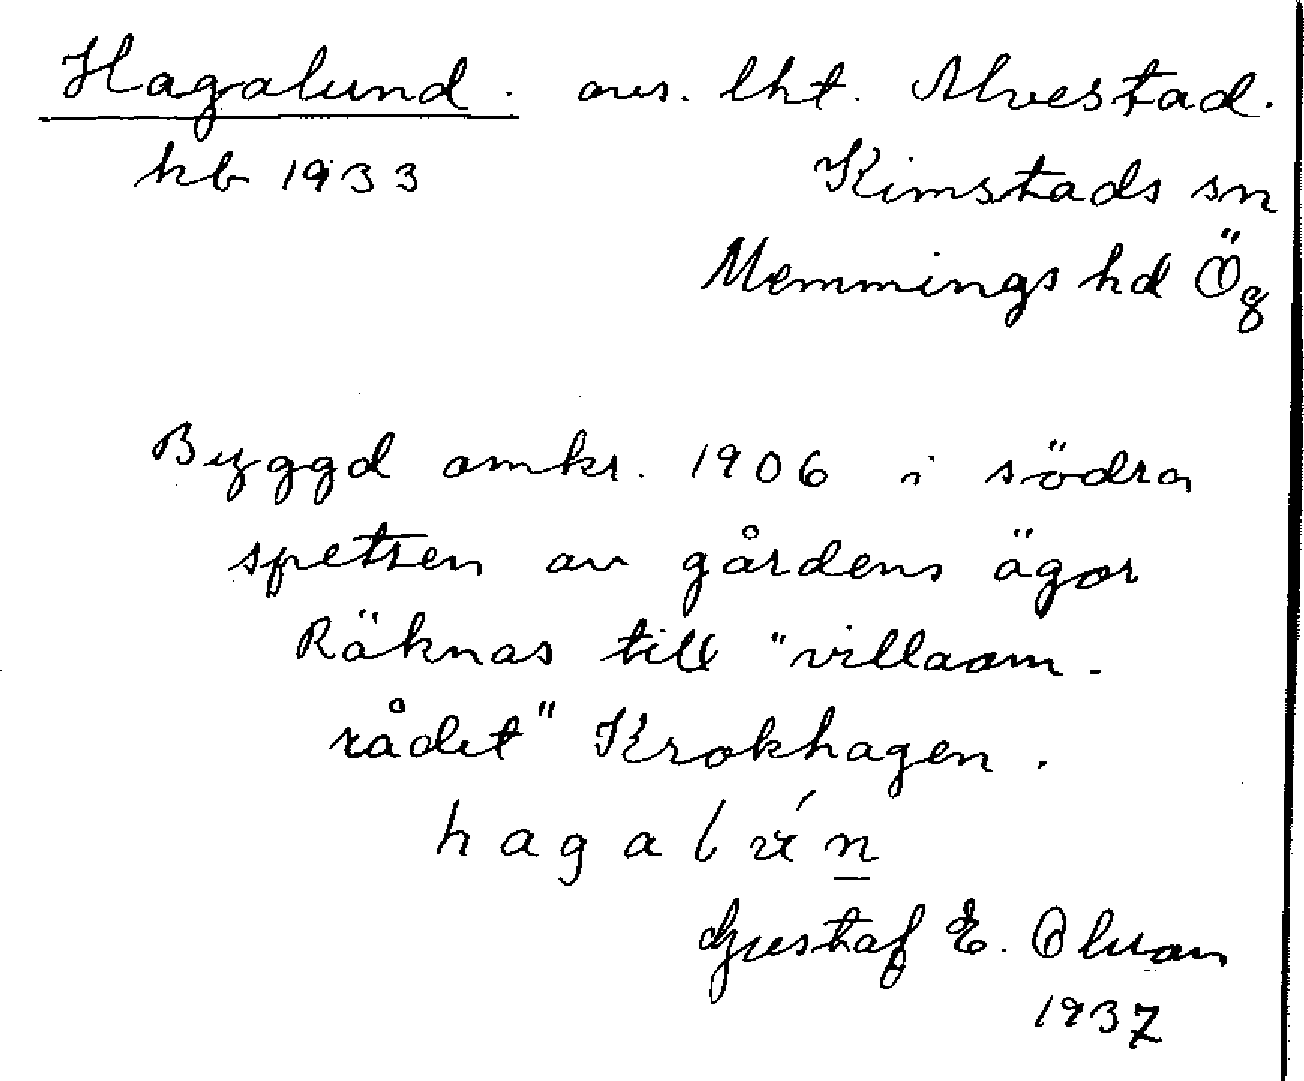 Hagalund. avs. lht. Alvestad.
kb 1933 Kimstads sn
Memmings hd Ög
Byggd omkr. 1906 i södra
spetsen av gårdens ägor
Räknas till "villaom-
rådet" Krokhagen.
hagal n
Gustaf E. Olsson
1937